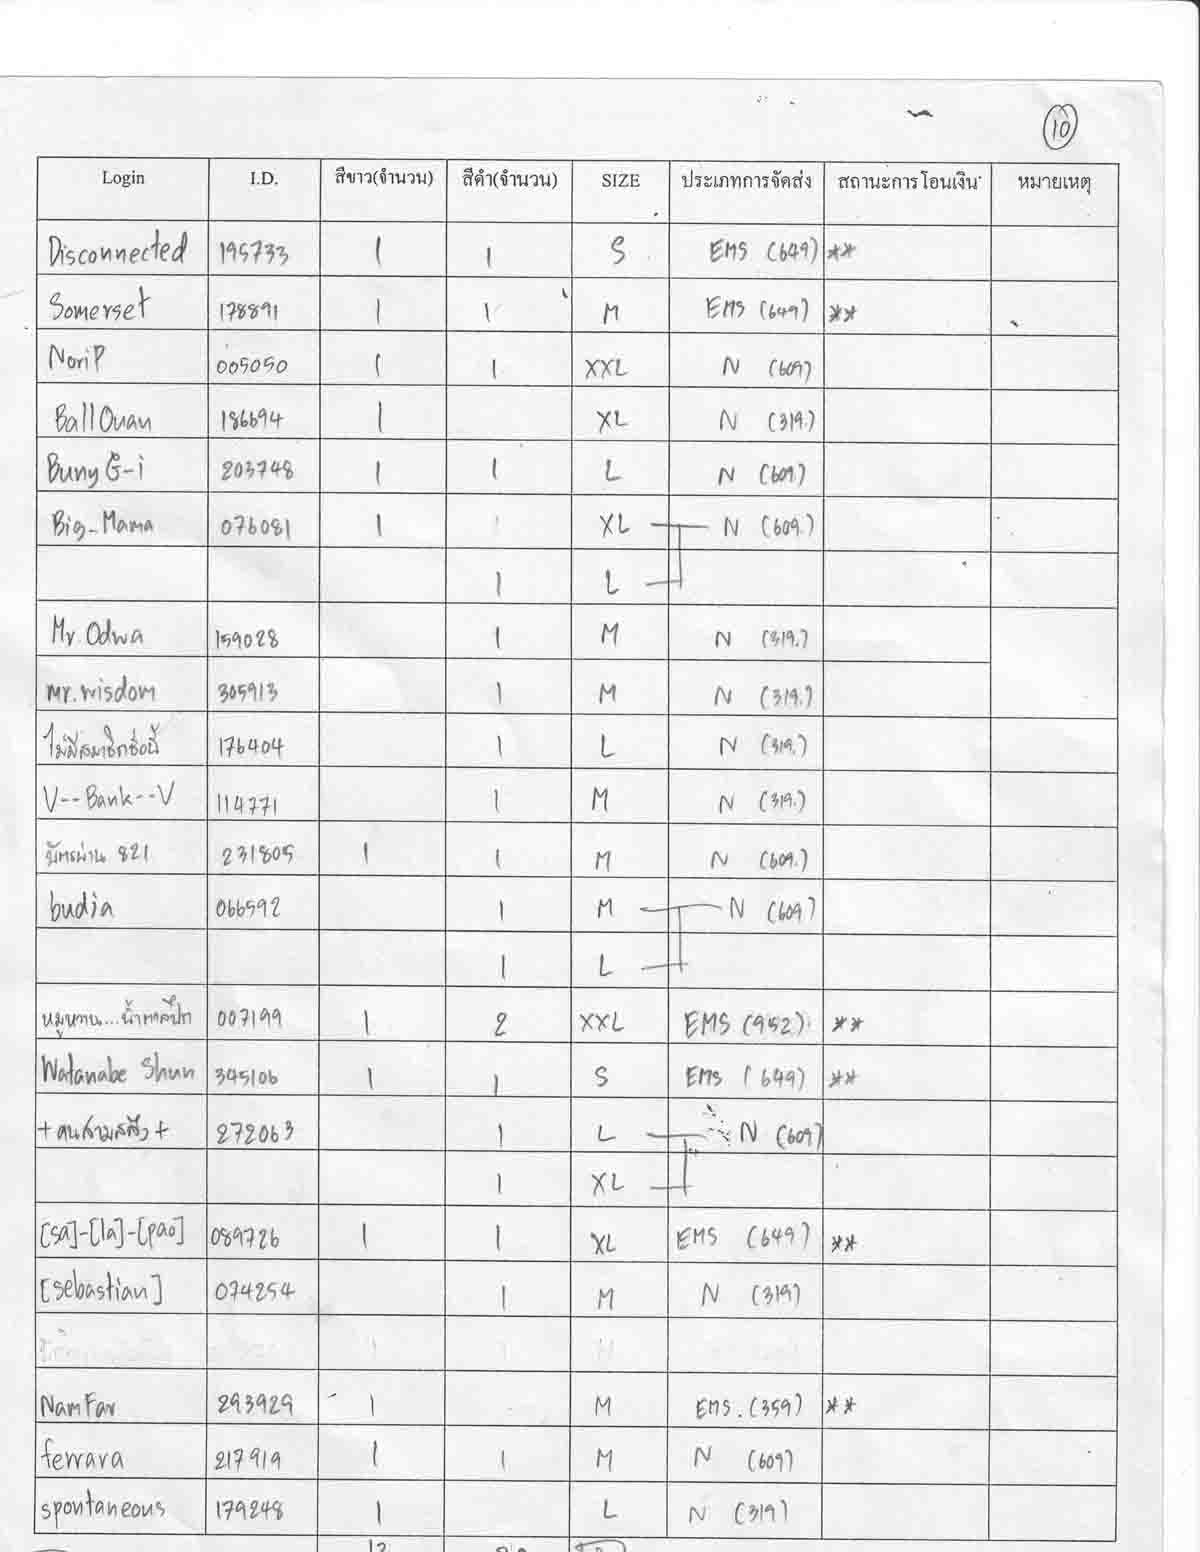 10
Login I.D. สีขาว(จำนวน) สีดำ(จำนวน) SIZE ประเภทการจัดส่ง สถานะการโอนเงิน หมายเหตุ
Disconnected 195733 1 1 S EMS (649) **
Somerset 178891 1 1 M EMS (649) **
NoriP 005050 1 1 XXL N (609)
BallOuan 186694 1 XL N (319.)
Buny G-i 203748 1 1 L N (609)
Big-Mama 076081 1 XL N (609.)
1 L
Mr.Odwa 159028 1 M N (319.)
mr.wisdom 305913 1 M N (319.)
ไม่มีสมาชิกชื่อนี้ 176404 1 L N (319.)
V--Bank--V 114771 1 M N (319.)
บัตรผ่าน 821 231805 1 1 M N (609.)
budia 066592 1 M N (609)
1 L
หมูหวาน...น้ำตาลปึก 007199 1 2 XXL EMS (952) **
Watanabe Shun 345106 1 1 S EMS (649) **
272063 1 L N (609)
1 XL
[sa]-[la]-[pao] 089726 1 1 XL EMS (649) **
[sebastian] 074254 1 M N (319)
NamFar 293929 1 M EMS. (359) **
ferrara 217919 1 1 M N (609)
spontaneous 179248 1 L N (319)